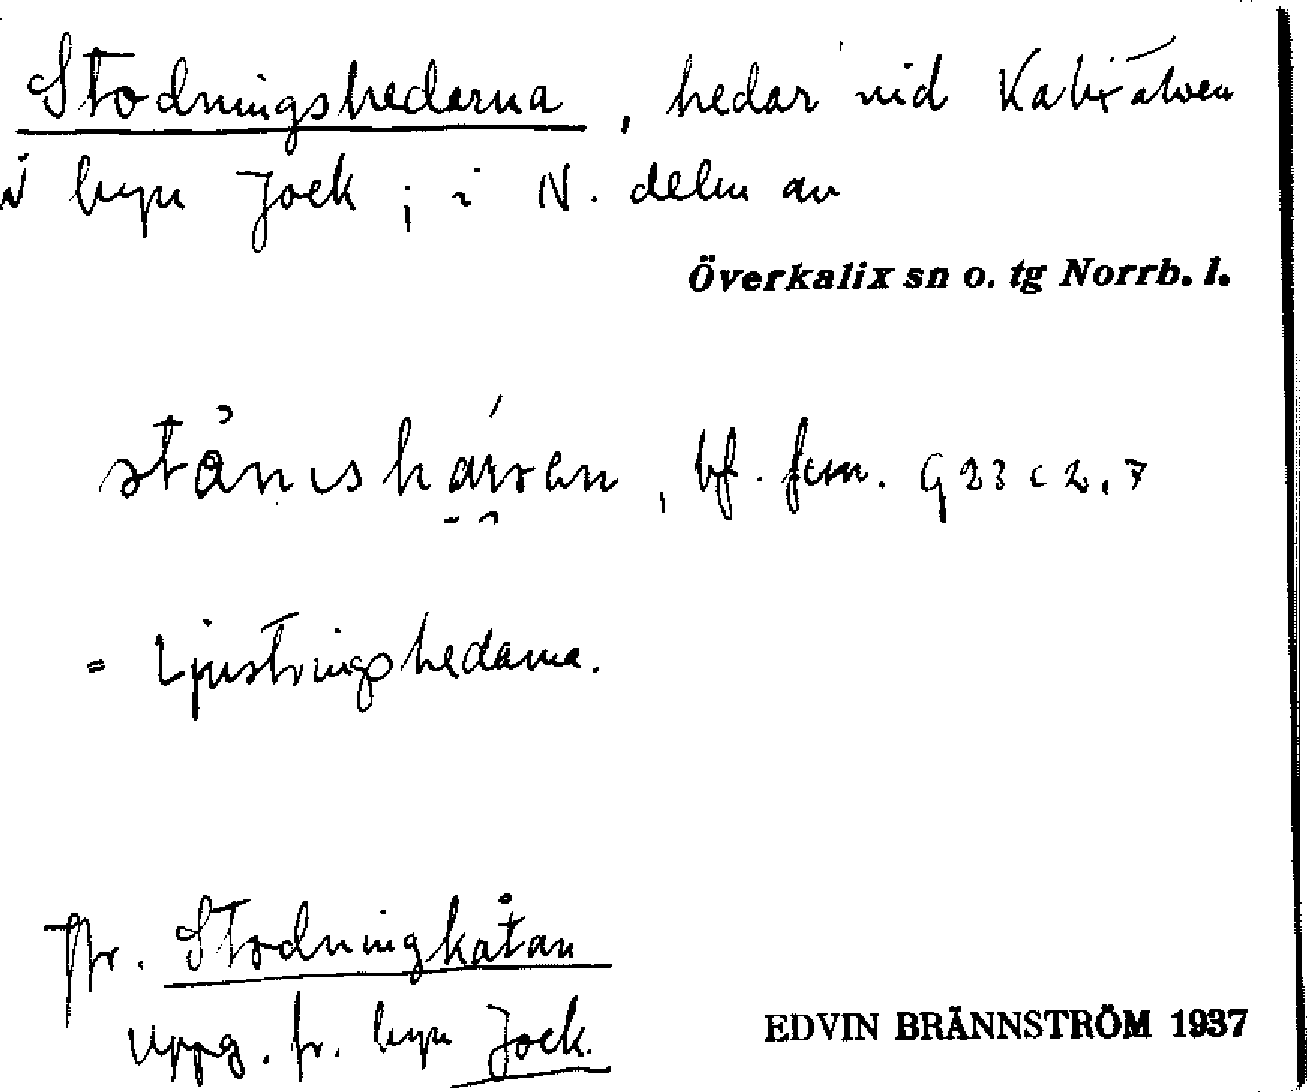 Stodningshedarna, hedar vid Kalixälven
byn Jock; i N. delen av
Överkalix sn o. tg Norrb. l.
bf. fem. G 23 c 2, 7
= Ljustringshedarna.
Jfr. Stodningkåtan
uppg. fr. byn Jock.
EDVIN BRÄNNSTRÖM 1937